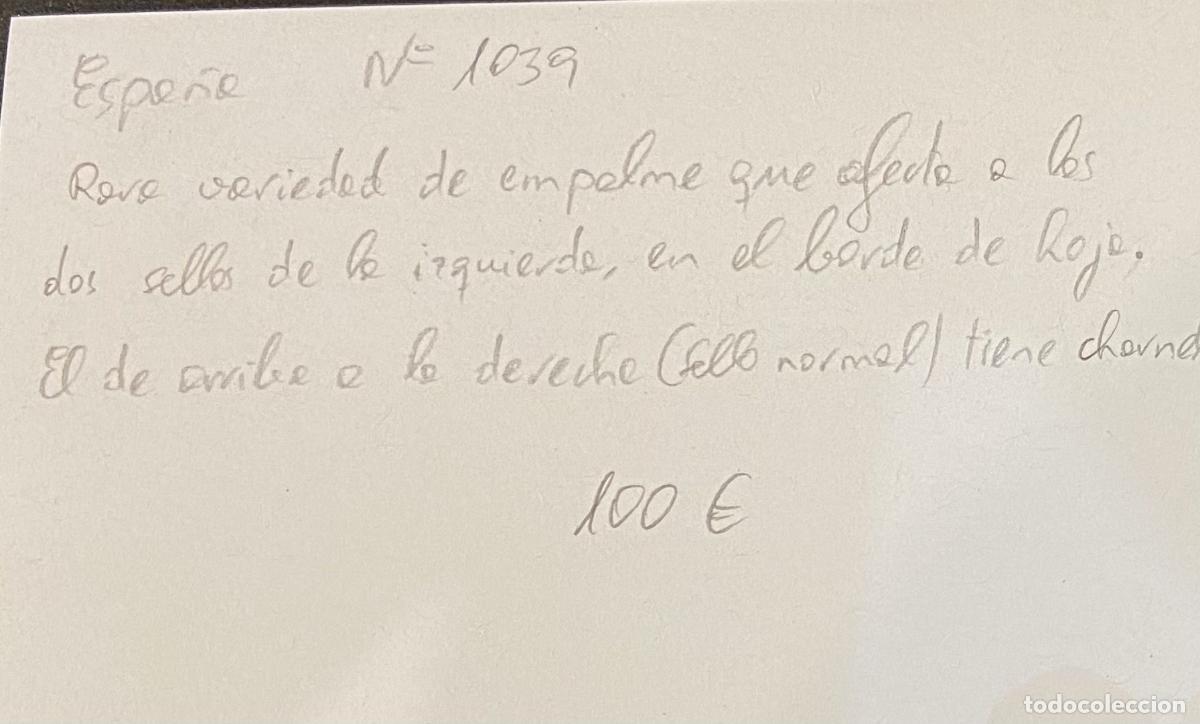 España Nº 1039
Rara variedad de empalme que afecta a los
dos sellos de la izquierda, en el borde de hoja.
El de arriba a la derecha (sello normal) tiene charnel
100 €
todocoleccion